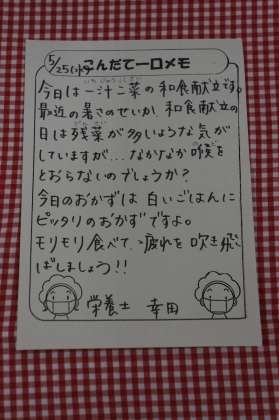 5/25(水) こんだて一口メモ
いちじゅうにさい
今日は一汁二菜の和食献立です。
最近の暑さのせいか、和食献立の
日は残菜が多いような気が
していますが…なかなか喉を
とおらないのでしょうか？
今日のおかずは白いごはんに
ピッタリのおかずですよ。
モリモリ食べて、疲れを吹き飛
ばしましょう!!
栄養士 幸田